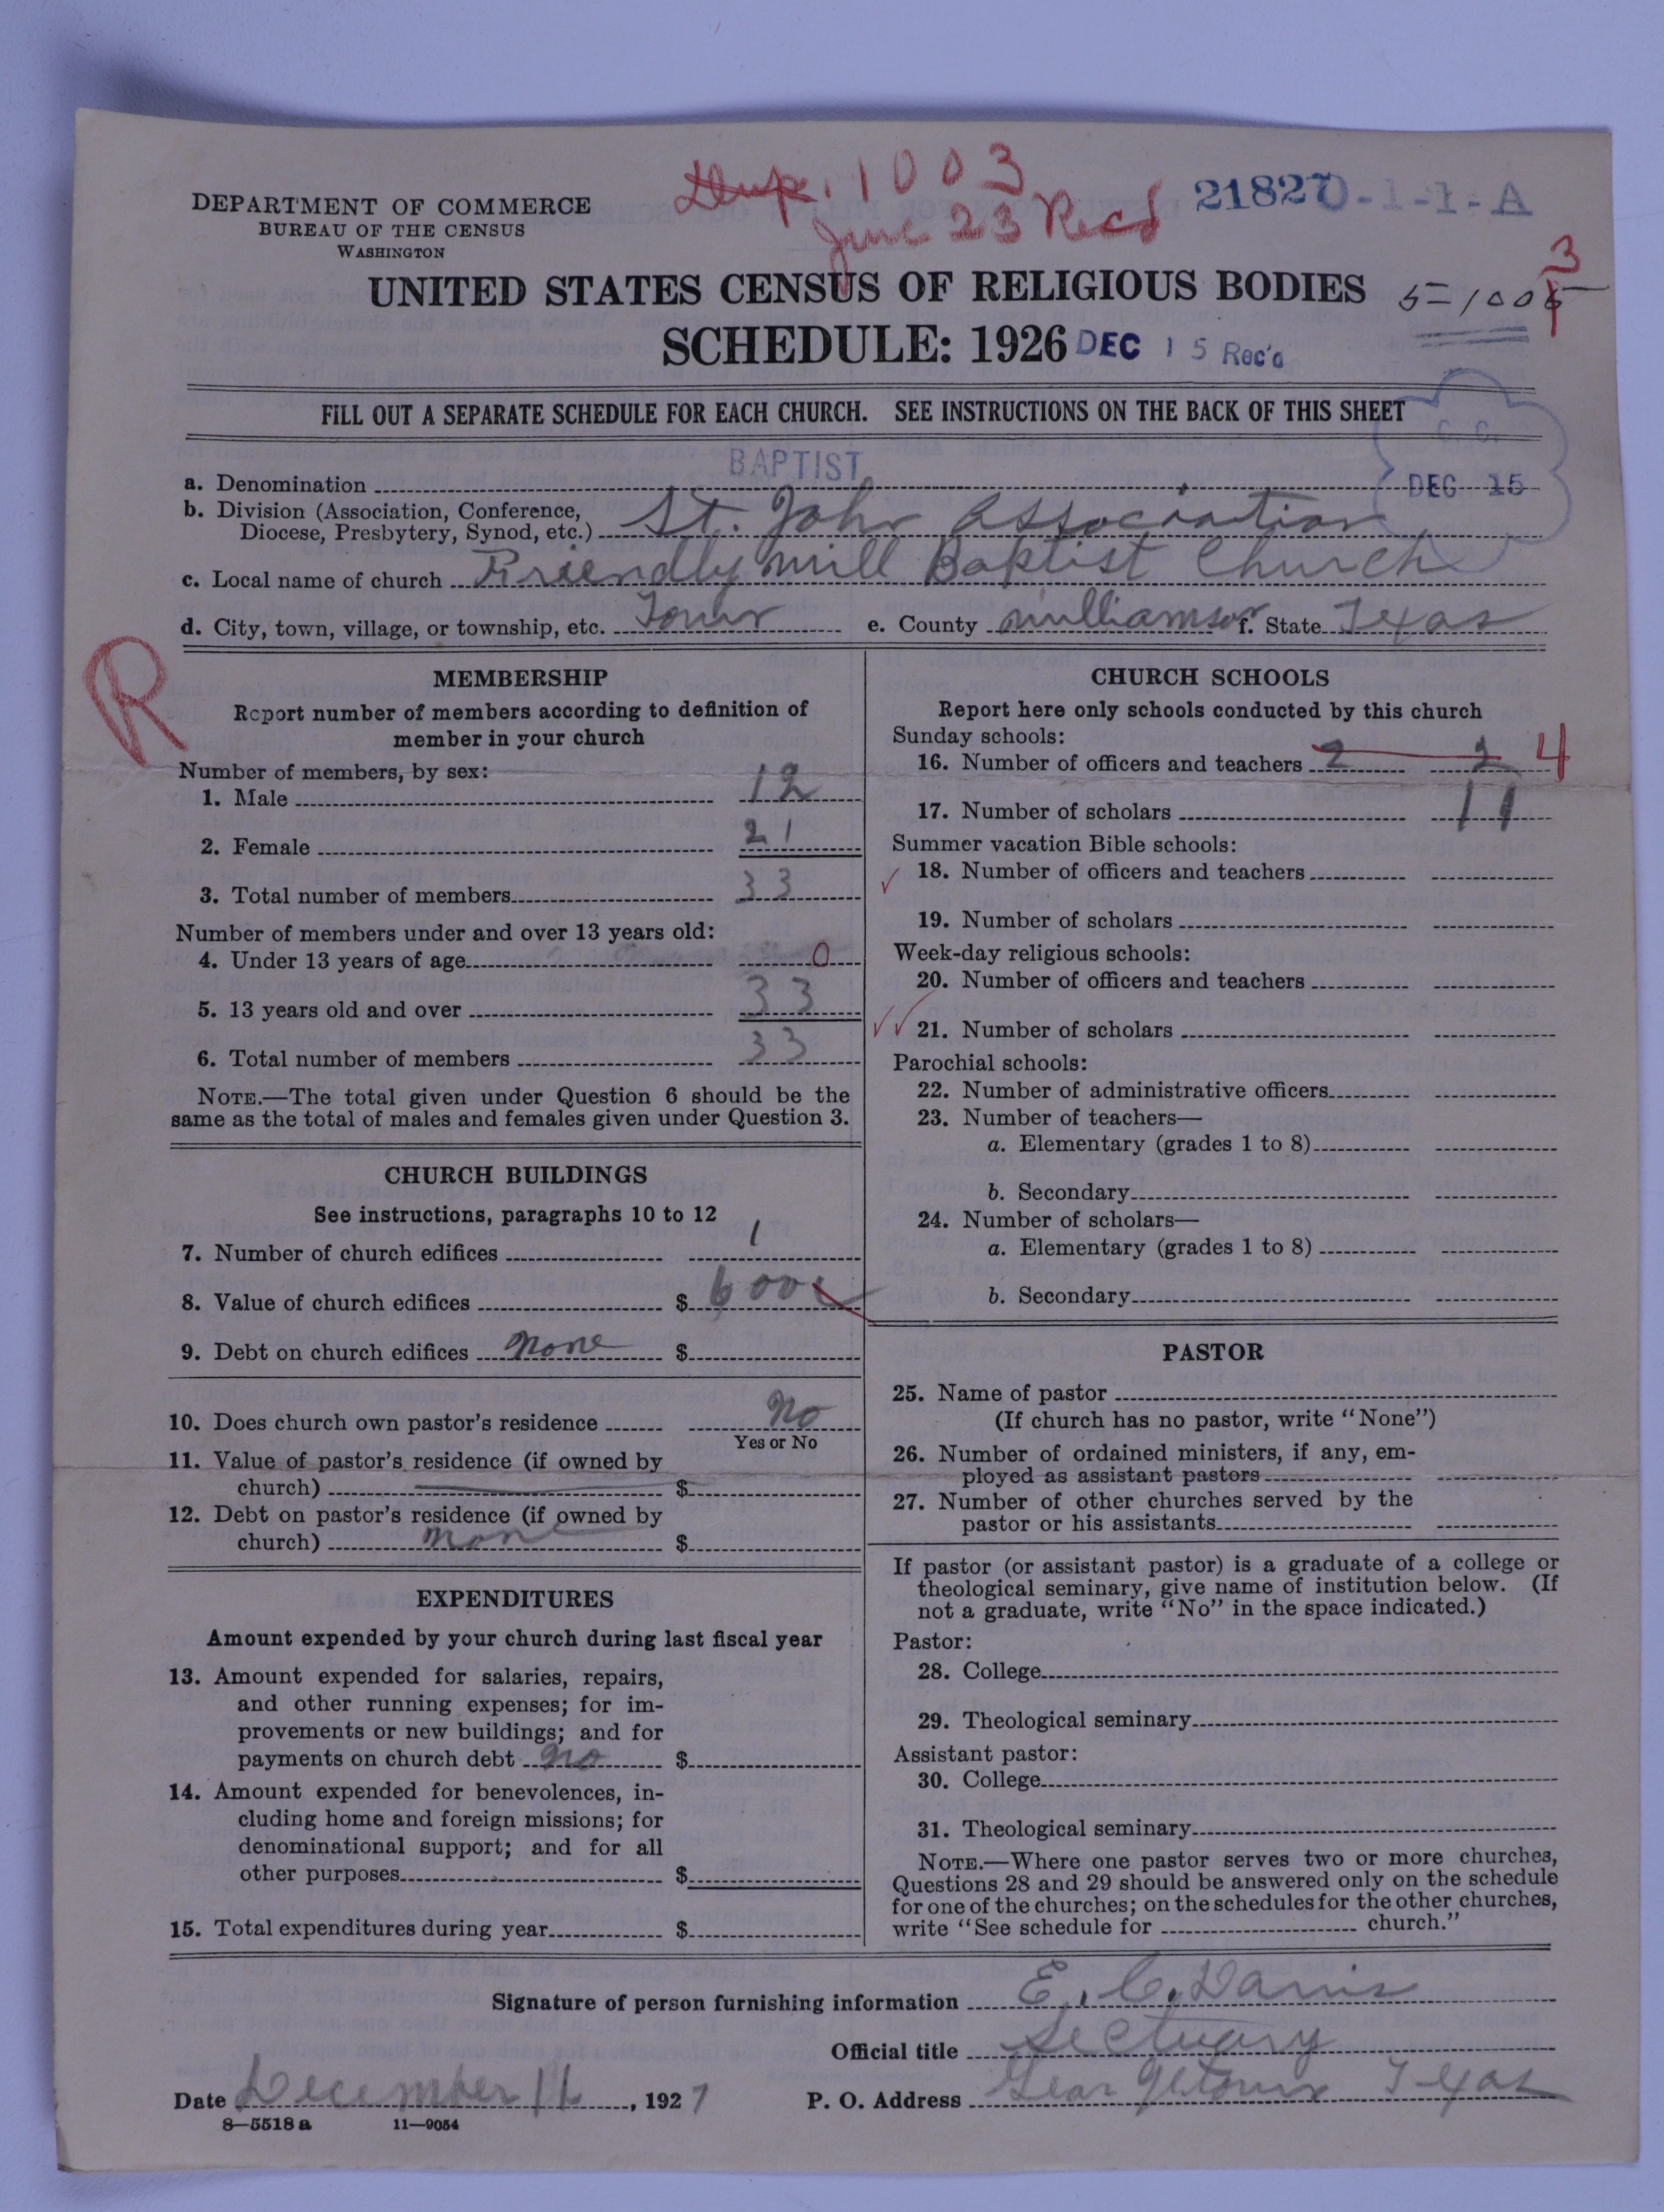 Dup. 1003
June 23 Rec'd
21827 0-1-1-A
DEPARTMENT OF COMMERCE
BUREAU OF THE CENSUS
WASHINGTON
UNITED STATES CENSUS OF RELIGIOUS BODIES
5=1005
3
SCHEDULE: 1926
DEC 15 Rec'd
FILL OUT A SEPARATE SCHEDULE FOR EACH CHURCH. SEE INSTRUCTIONS ON THE BACK OF THIS SHEET
C. C.
DEC 15
a. Denomination BAPTIST
b. Division (Association, Conference,
Diocese, Presbytery, Synod, etc.) St. John Association
c. Local name of church Friendly Mill Baptist Church
d. City, town, village, or township, etc. Town e. County Williamson f. State Texas
R
MEMBERSHIP
Report number of members according to definition of
member in your church
Number of members, by sex:
1. Male 12
2. Female 21
3. Total number of members 33
Number of members under and over 13 years old:
4. Under 13 years of age 0
5. 13 years old and over 33
6. Total number of members 33
NOTE.—The total given under Question 6 should be the
same as the total of males and females given under Question 3.
CHURCH BUILDINGS
See instructions, paragraphs 10 to 12
7. Number of church edifices 1
8. Value of church edifices $ 600
9. Debt on church edifices none $
10. Does church own pastor's residence No
Yes or No
11. Value of pastor's residence (if owned by
church) $
12. Debt on pastor's residence (if owned by
church) none $
EXPENDITURES
Amount expended by your church during last fiscal year
13. Amount expended for salaries, repairs,
and other running expenses; for im-
provements or new buildings; and for
payments on church debt no $
14. Amount expended for benevolences, in-
cluding home and foreign missions; for
denominational support; and for all
other purposes $
15. Total expenditures during year $
CHURCH SCHOOLS
Report here only schools conducted by this church
Sunday schools:
16. Number of officers and teachers 2 2 4
17. Number of scholars 11
Summer vacation Bible schools:
18. Number of officers and teachers
19. Number of scholars
Week-day religious schools:
20. Number of officers and teachers
21. Number of scholars
Parochial schools:
22. Number of administrative officers
23. Number of teachers—
a. Elementary (grades 1 to 8)
b. Secondary
24. Number of scholars—
a. Elementary (grades 1 to 8)
b. Secondary
PASTOR
25. Name of pastor
(If church has no pastor, write "None")
26. Number of ordained ministers, if any, em-
ployed as assistant pastors
27. Number of other churches served by the
pastor or his assistants
If pastor (or assistant pastor) is a graduate of a college or
theological seminary, give name of institution below. (If
not a graduate, write "No" in the space indicated.)
Pastor:
28. College
29. Theological seminary
Assistant pastor:
30. College
31. Theological seminary
NOTE.—Where one pastor serves two or more churches,
Questions 28 and 29 should be answered only on the schedule
for one of the churches; on the schedules for the other churches,
write "See schedule for church."
Signature of person furnishing information E. C. Davis
Official title Sectuary
Date December 11, 1927 P. O. Address Geargetown Texas
8—5518 a 11—9054